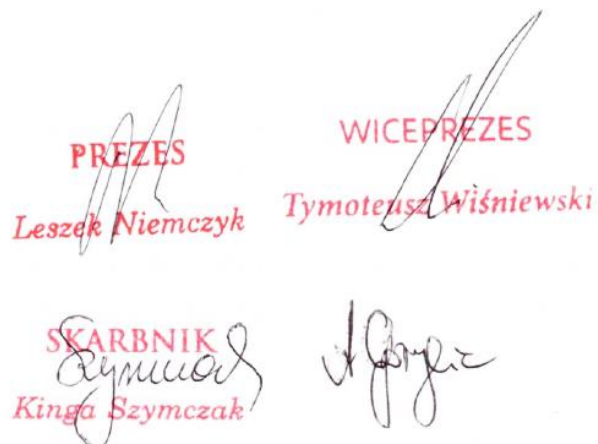 PREZES
Leszek Niemczyk
WICEPREZES
Tymoteusz Wiśniewski
SKARBNIK
Szymczak
Kinga Szymczak